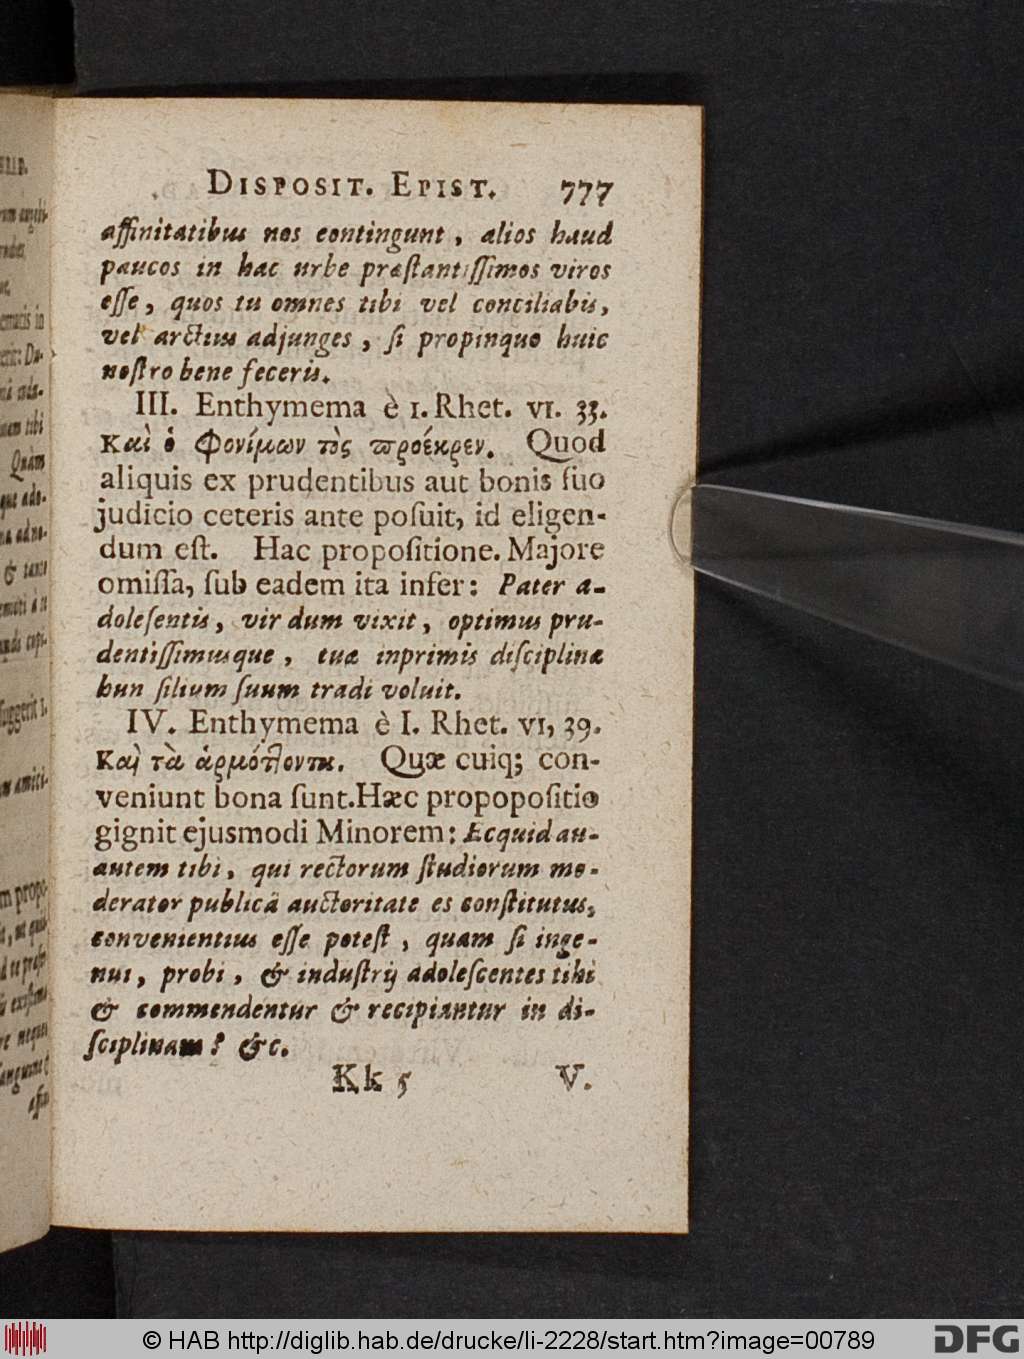 DISPOSIT. EPIST. 777
affinitatibus nos contingunt, alios haud
paucos in hac urbe præstantissimos viros
esse, quos tu omnes tibi vel conciliabis,
vel arctius adjunges, si propinquo huic
nostro bene feceris.
III. Enthymema è 1. Rhet. VI. 33.
Καὶ ὁ Φρονίμων τὶς προέκρεν. Quod
aliquis ex prudentibus aut bonis suo
judicio ceteris ante posuit, id eligen-
dum est. Hac propositione. Majore
omissa, sub eadem ita infer: Pater a-
dolesentis, vir dum vixit, optimus pru-
dentissimusque, tuæ inprimis disciplinæ
hun filium suum tradi voluit.
IV. Enthymema è I. Rhet. VI, 39.
Καὶ τὰ ἁρμότλοντα. Quæ cuiq; con-
veniunt bona sunt. Hæc propopositio
gignit ejusmodi Minorem: Ecquid au-
autem tibi, qui rectorum studiorum mo-
derator publicâ auctoritate es constitutus,
convenientius esse potest, quam si inge-
nui, probi, & industrij adolescentes tibi
& commendentur & recipiantur in di-
sciplinam? &c.
Kk 5 V.
© HAB http://diglib.hab.de/drucke/li-2228/start.htm?image=00789
DFG